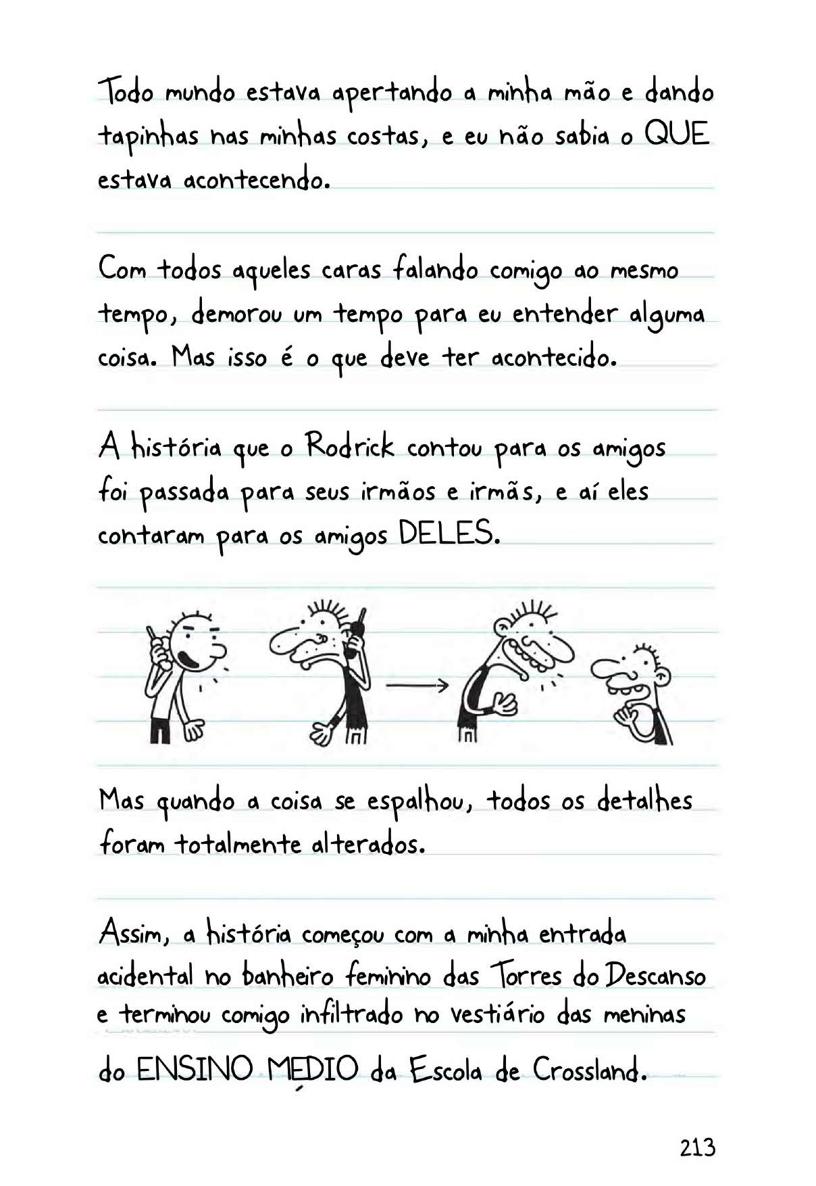 Todo mundo estava apertando a minha mão e dando
tapinhas nas minhas costas, e eu não sabia o QUE
estava acontecendo.
Com todos aqueles caras falando comigo ao mesmo
tempo, demorou um tempo para eu entender alguma
coisa. Mas isso é o que deve ter acontecido.
A história que o Rodrick contou para os amigos
foi passada para seus irmãos e irmãs, e aí eles
contaram para os amigos DELES.
Mas quando a coisa se espalhou, todos os detalhes
foram totalmente alterados.
Assim, a história começou com a minha entrada
acidental no banheiro feminino das Torres do Descanso
e terminou comigo infiltrado no vestiário das meninas
do ENSINO MEDIO da Escola de Crossland.
213